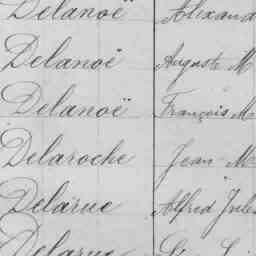 Delanoë Alexand
Delanoë Auguste M
Delanoë François M
Delaroche Jean M
Delarue Alfred Jules
Delarue